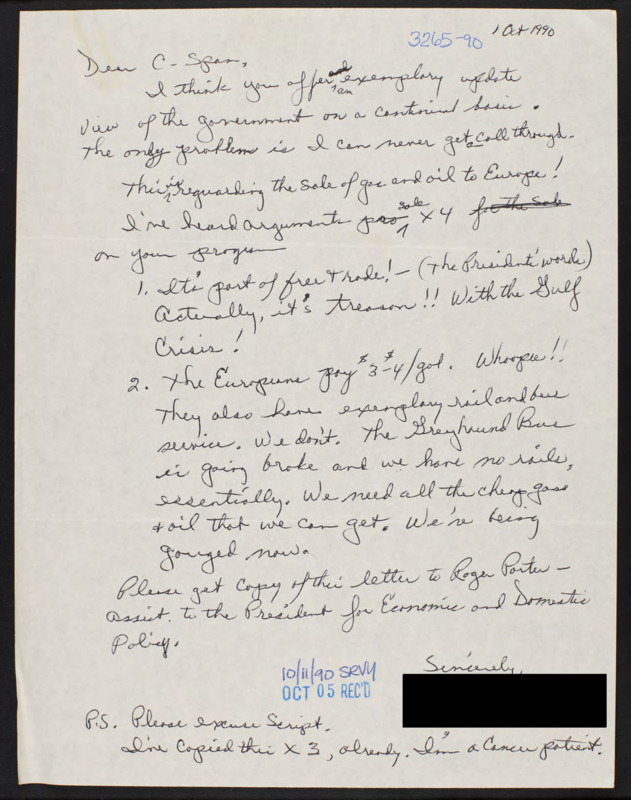 3265-90
1 Oct 1990
Dear C-Span,
I think you offer an exemplary update
view of the government on a continual basis.
The only problem is I can never get a call through.
This is reguarding the sale of gas and oil to Europe!
I've heard arguments pro sale x4 for the sale
on your program
1. It's part of free trade! - (The President's words)
Actually, it's treason!! With the Gulf
Crisis!
2. The Europeans pay $3-$4/gal. Whoopee!!
They also have exemplary rail and bus
service. We don't. The Greyhound Bus
is going broke and we have no rails,
essentially. We need all the cheap gas
& oil that we can get. We're being
gouged now.
Please get copy of this letter to Roger Porter -
assist. to the President for Economic and Domestic
Policy.
Sincerely,
10/11/90 SRVY
OCT 05 REC'D
P.S. Please excuse Script.
I've Copied this x 3, already. I'm a Cancer patient.